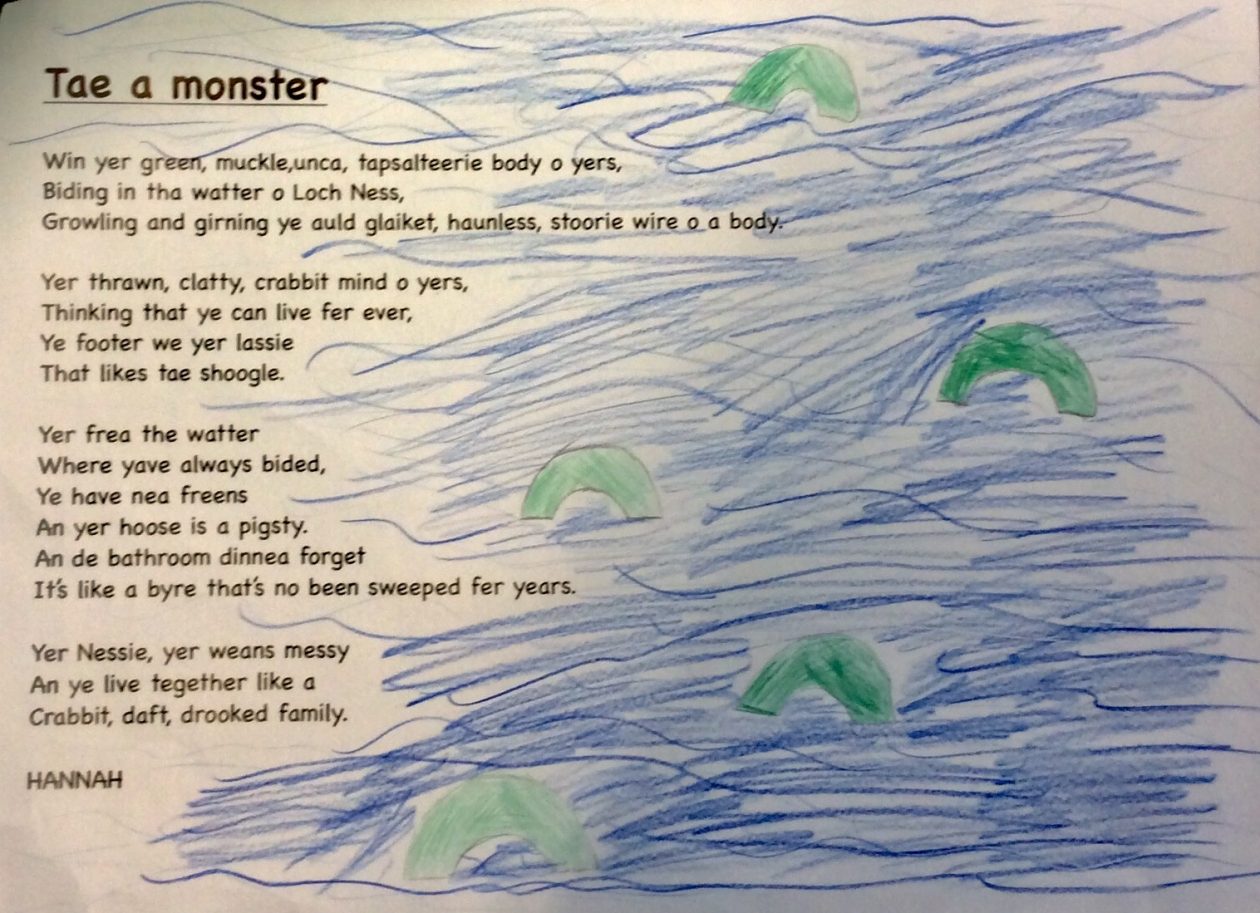 Tae a monster
Win yer green, muckle,unca, tapsalteerie body o yers,
Biding in tha watter o Loch Ness,
Growling and girning ye auld glaiket, haunless, stoorie wire o a body.
Yer thrawn, clatty, crabbit mind o yers,
Thinking that ye can live fer ever,
Ye footer we yer lassie
That likes tae shoogle.
Yer frea the watter
Where yave always bided,
Ye have nea freens
An yer hoose is a pigsty.
An de bathroom dinnea forget
It's like a byre that's no been sweeped fer years.
Yer Nessie, yer weans messy
An ye live tegether like a
Crabbit, daft, drooked family.
HANNAH